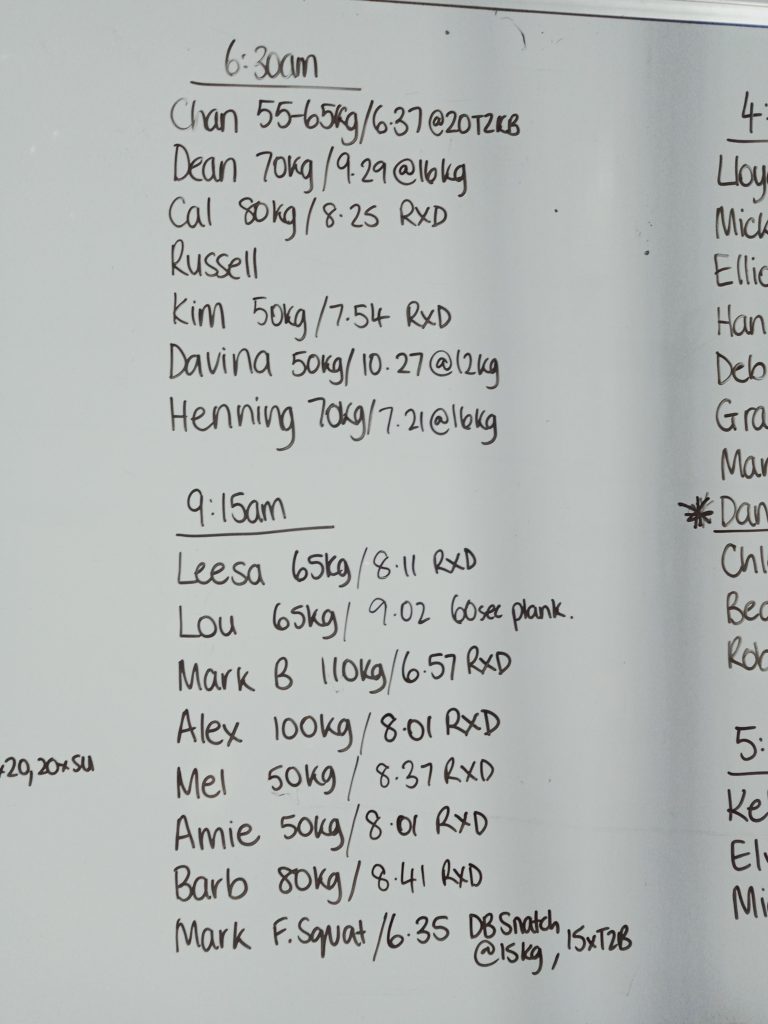 6:30am
Chan 55-65kg/6.37@20T2KB
Dean 70kg/9.29@16kg
Cal 80kg/8.25 RXD
Russell
Kim 50kg/7.54 RXD
Davina 50kg/10.27@12kg
Henning 70kg/7.21@16kg
9:15am
Leesa 65kg/8.11 RXD
Lou 65kg/ 9.02 60sec plank.
Mark B 110kg/6.57 RXD
Alex 100kg/8.01 RXD
Mel 50kg/ 8.37 RXD
Amie 50kg/8.01 RXD
Barb 80kg/8.41 RXD
Mark F.Squat/6.35 DB Snatch
@15kg, 15xT2B
20,20xSU
4:
Lloy
Mick
Ellio
Han
Deb
Gra
Mar
*Dan
Chl
Bec
Rob
5:
Ke
El
Mi